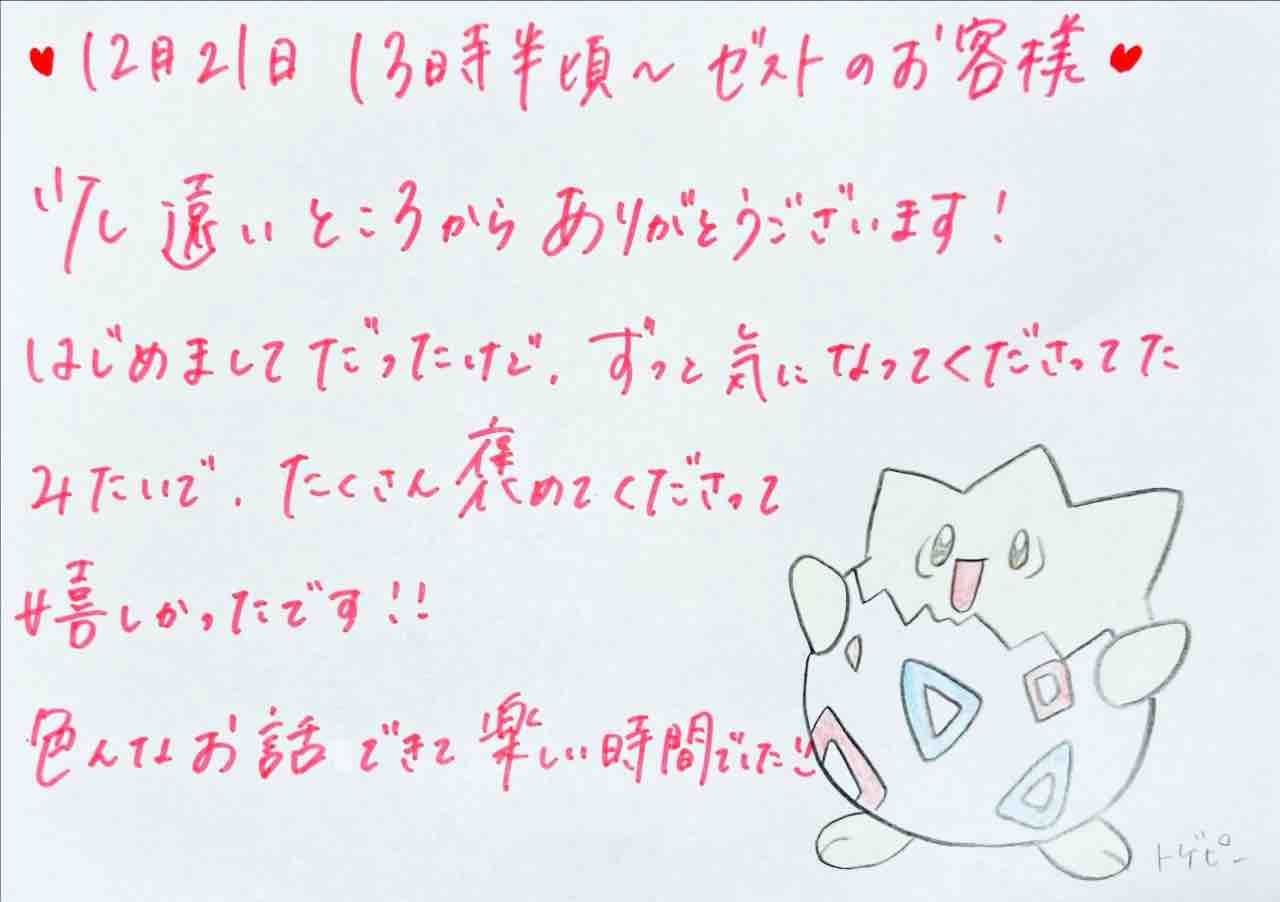 ♥12月21日 13時半頃～ ゼストのお客様♥
少し遠いところからありがとうございます！
はじめましてだったけど、ずっと気になってくださってた
みたいで、たくさん褒めてくださって
嬉しかったです！！
色んなお話できて楽しい時間でした！！
トゲピー